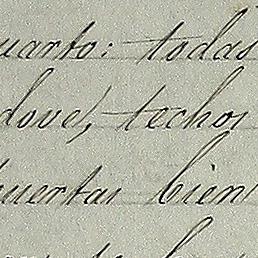 uarto: todas
dove, techos
puertas bien